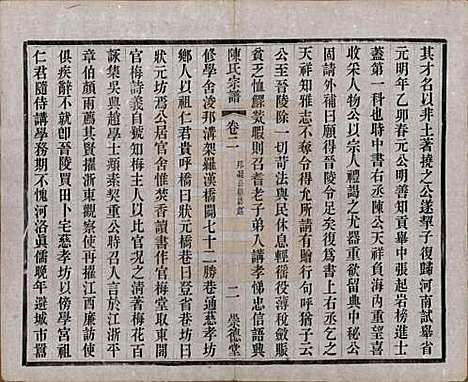 其才名以非土著撓之公遂挈子復歸河南試舉省
元明年乙卯春元公明善知貢舉中張起岩榜進士
蓋第一科也時中書右丞陳公天祥負海內重望喜
收采公人以宗人禮視之尤器重欲留典中秘公
固請外補日願得晉陵令足矣復爲書上右丞曰
天祥知雅志不可奪允所請有贈行句呼猶子云
公至晉陵除一切苛法與民休息輕徭役薄稅斂賑
貧乏恤鰥煢暇則召耆老子弟人講孝悌忠信語興
陳氏宗譜
卷二
二
崇德堂
修學舍浚邗溝架羅漢橋闢七十二勝巷通慈孝坊
鄉人以祖仁君貴呼橋曰狀元橋巷曰登省巷坊曰
狀元坊云公居官舍焚香讀書作官梅堂取東閣
官梅詩義自號也人以此官況之清著梅花百
詠集吳興趙學士素愛重公時召人言於江浙平
章伯顏兩薦其才擢浙東觀察使再擢江西廉訪使
俱疾辭不仕晉陵買田卜宅慈孝坊以傍學宮祖
仁君隨侍講學務期不愧河洛眞儒晚年避城市囂